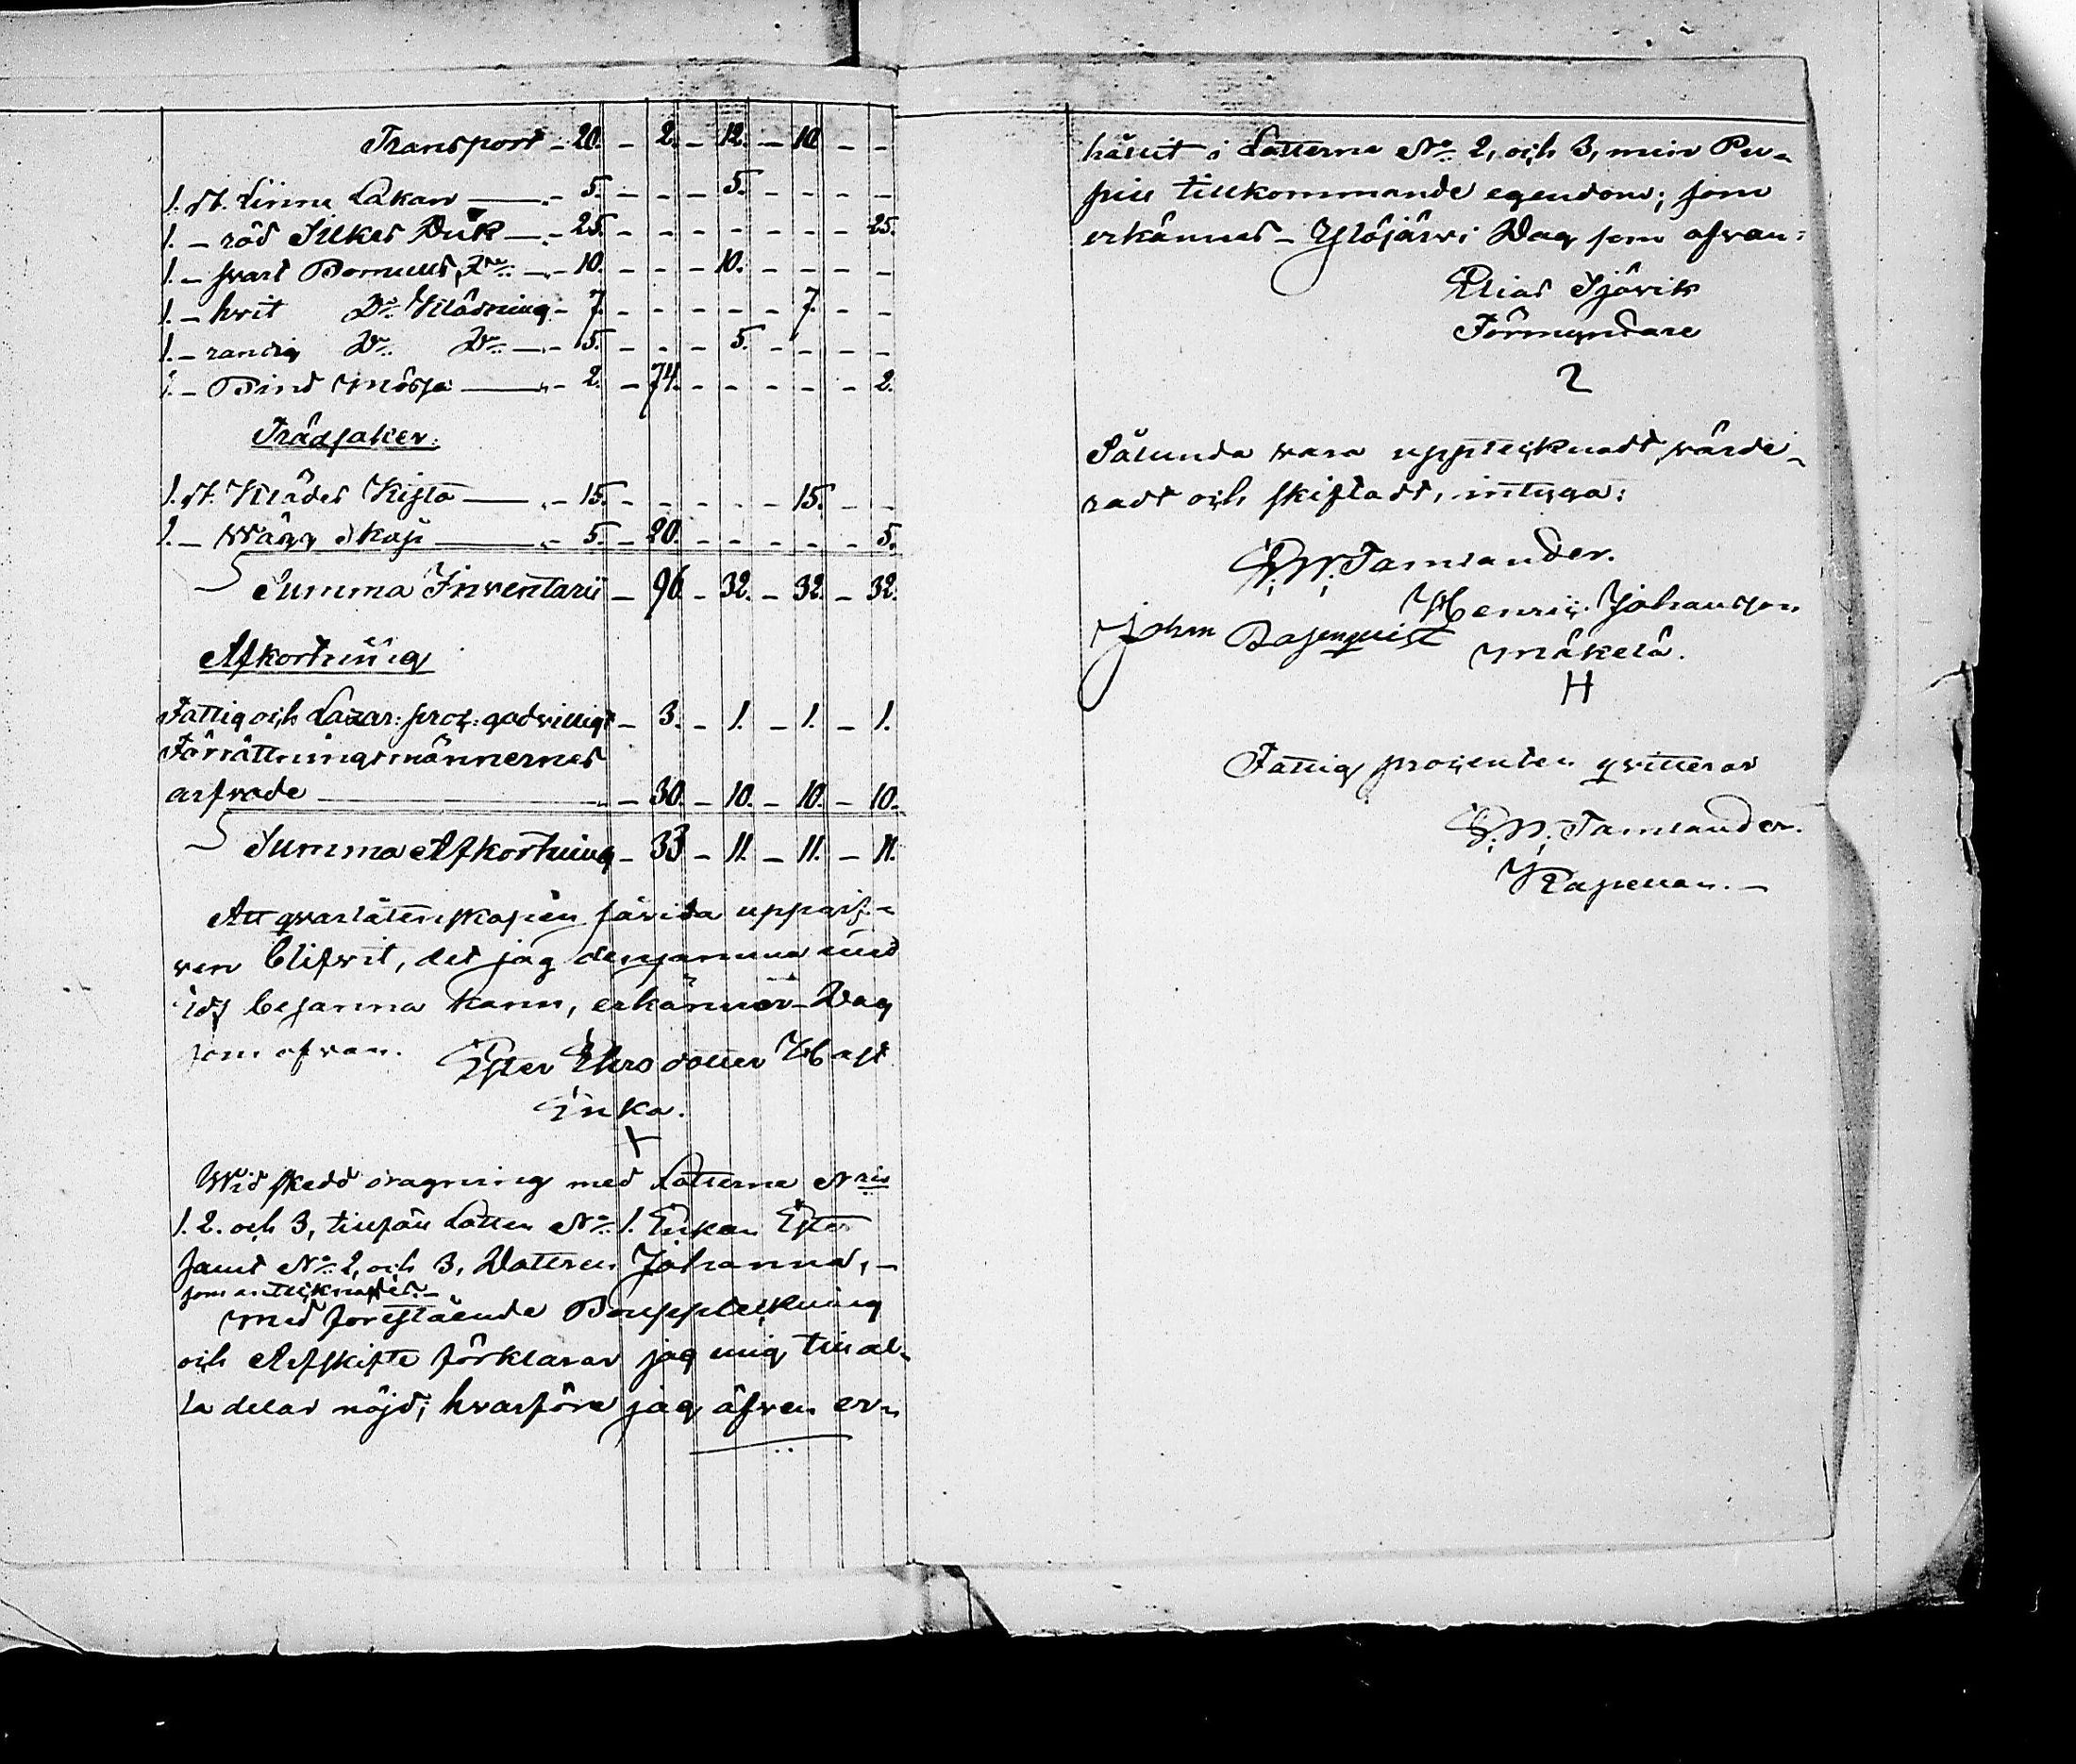 Transport - 20. - 2. - 12. - 10. - -
1. st. Linne Lakan - 5. - - - 5. - - - -
1. - röd Silkes Duk - 25. - - - - - - - 25.
1. - svart Bomulls Do - 10. - - - 10. - - - -
1. - hvit Do Klädning - 7. - - - - - 7. - -
1. - randig Do Do - 5. - - - 5. - - - -
1. - Bind Mössa - 2. - 74. - - - - - 2.
Trädsaker:
1. st. Klädes Kista - 15. - - - - - 15. - -
1. - Wägg Skåp - 5. - 20. - - - - - 5.
Summa Inventarii - 96. - 32. - 32. - 32.
Afkortning
Fattig och Lazar: proc: godvilligt - 3. - 1. - 1. - 1.
Förrättningsmännernes
arfvode - 30. - 10. - 10. - 10.
Summa Afkortning - 33 - 11. - 11. - 11.
Att qvarlåtenskapen såvida uppgif-
ven blifvit, det jag densamma med
ed besanna kann, erkänner - Dag
som ofvan. Ester Ehrsdotter Hast
Enka.
+
Wid skedd dragning med Lotterne Nris
1. 2. och 3, tillföll Lotten No 1. Enkan Ester
samt No 2, och 3, Dottren Johanna, -
som antecknades. -
Med forestående Bouppteckning
och Arfskifte förklarar jag mig till al-
la delar nöjd; hvarföre jag äfven er-
hållit i Lotterne No 2, och 3, min Pu-
pill tillkommande egendom; som
erkännes - Ylöjärvi Dag som ofvan:
Elias Sjövik
Förmyndare
2
Sålunda vara upptecknadt, värde-
radt och skiftadt, intyga:
Tamlander.
Henric Johansson
John Mäkelä.
H
Fattig procenten qvitterar
Tamlander.
Kapellan. -